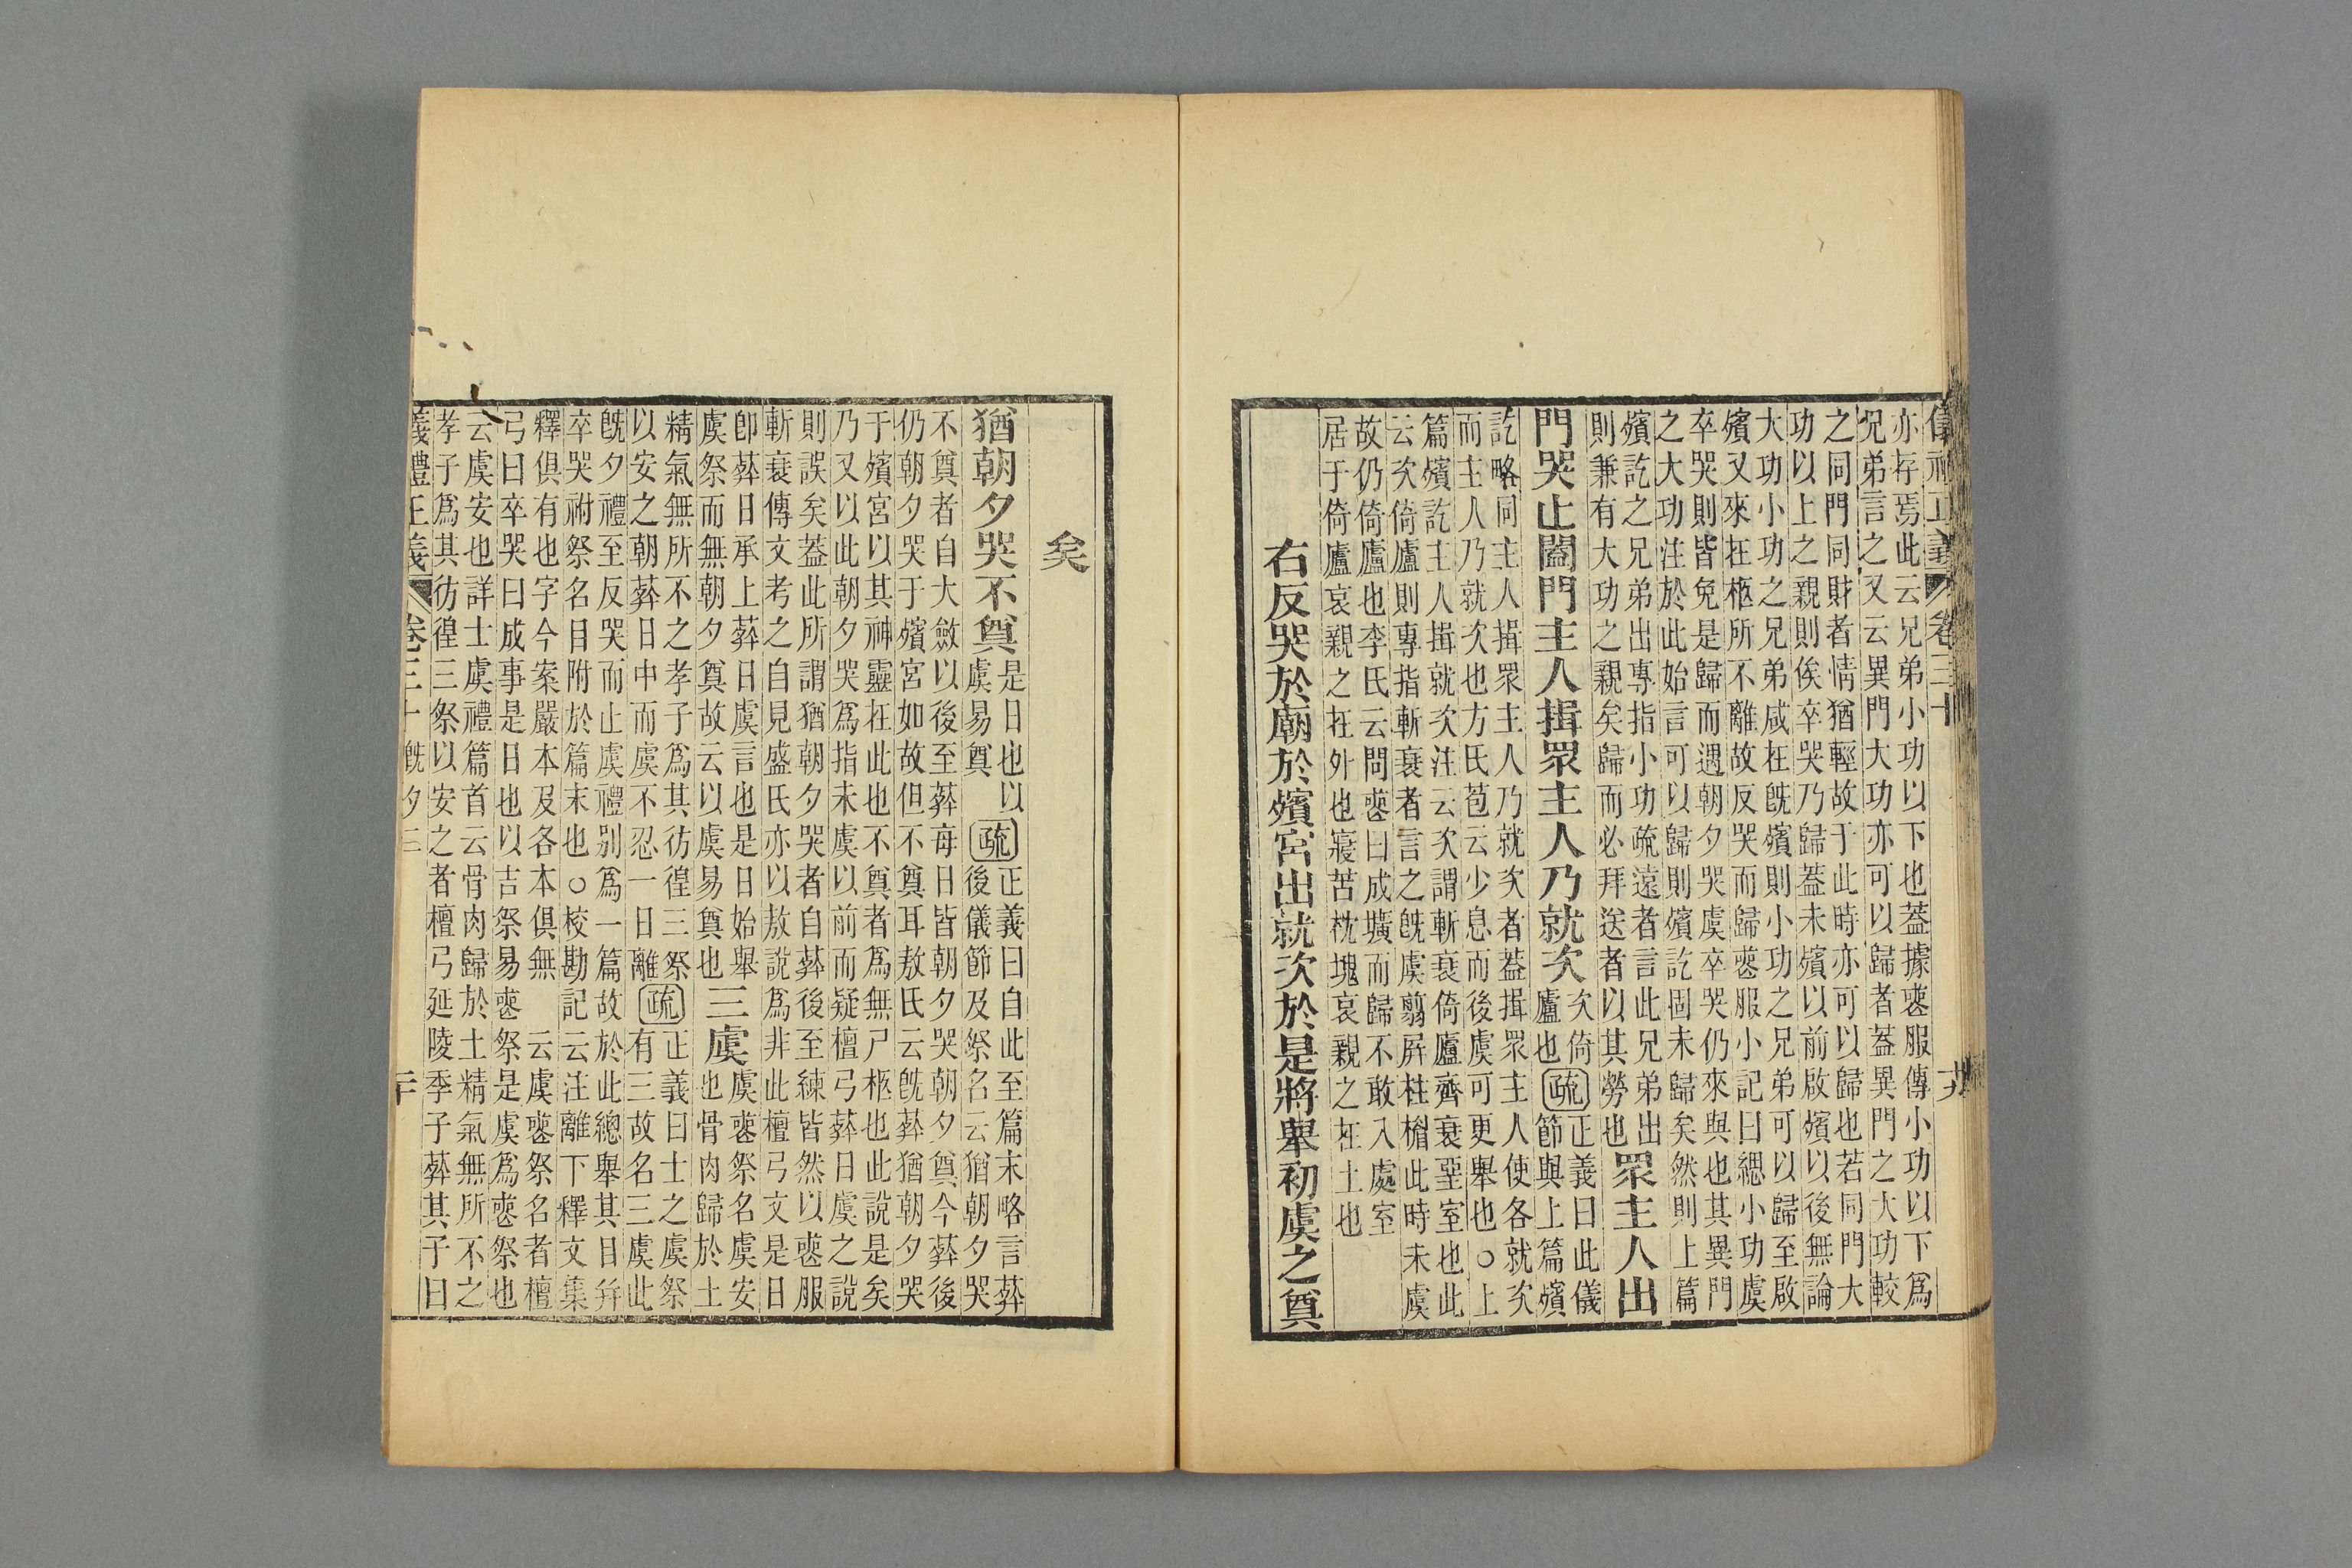 儀禮正義 卷三十
亦存焉此云兄弟小功以下也蓋據喪服傳小功以下爲
兄弟言之又云異門大功亦可以歸者蓋異門之大功較
之同門同財者情猶輕故于此時亦可以歸也若同門大
功以上之親則俟卒哭乃歸蓋未殯以前啟殯以後無論
大功小功之兄弟咸在旣殯則小功之兄弟可以歸至啟
殯又來在柩所不離故反哭而歸喪服小記曰緦小功虞
卒哭則皆免是歸而遇朝夕哭虞卒哭仍來與也其異門
之大功注於此始言可以歸則殯訖固未歸矣然則上篇
殯訖之兄弟出專指小功疏遠者言此兄弟出
則兼有大功之親矣歸而必拜送者以其勞也
眾主人出
門哭止闔門主人揖眾主人乃就次
次倚
廬也
疏
正義曰此儀
節與上篇殯
訖略同主人揖眾主人乃就次者蓋揖眾主人使各就次
而主人乃就次也方氏苞云少息而後虞可更舉也○上
篇殯訖主人揖就次注云次謂斬衰倚廬齊衰堊室也此
云次倚廬則專指斬衰者言之旣虞翦屏柱楣此時未虞
故仍倚廬也李氏云問喪曰成壙而歸不敢入處室
居于倚廬哀親之在外也寢苫枕塊哀親之在土也
右反哭於廟於殯宮出就次於是將舉初虞之奠
矣
猶朝夕哭不奠
是日也以
虞易奠
疏
正義曰自此至篇末略言葬
後儀節及祭名云猶朝夕哭
不奠者自大斂以後至葬每日皆朝夕哭朝夕奠今葬後
仍朝夕哭于殯宮如故但不奠耳敖氏云旣葬猶朝夕哭
于殯宮以其神靈在此也不奠者爲無尸柩也此說是矣
乃又以此朝夕哭爲指未虞以前而疑檀弓葬日虞之說
則誤矣蓋此所謂猶朝夕哭者自葬後至練皆然以喪服
斬衰傳文考之自見盛氏亦以敖說爲非此檀弓文是日
卽葬日承上葬日虞言也是日始舉
虞祭而無朝夕奠故云以虞易奠也
三虞
虞喪祭名虞安
也骨肉歸於土
精氣無所不之孝子爲其彷徨三祭
以安之朝葬日中而虞不忍一日離
疏
正義曰士之虞祭
有三故名三虞此
旣夕禮至反哭而止虞禮別爲一篇故於此總舉其目幷
卒哭祔祭名目附於篇末也○校勘記云注離下釋文集
釋俱有也字今案嚴本及各本俱無　云虞喪祭名者檀
弓曰卒哭曰成事是日也以吉祭易喪祭是虞爲喪祭也
云虞安也詳士虞禮篇首云骨肉歸於土精氣無所不之
孝子爲其彷徨三祭以安之者檀弓延陵季子葬其子曰
義禮正義 卷三十 旣夕三